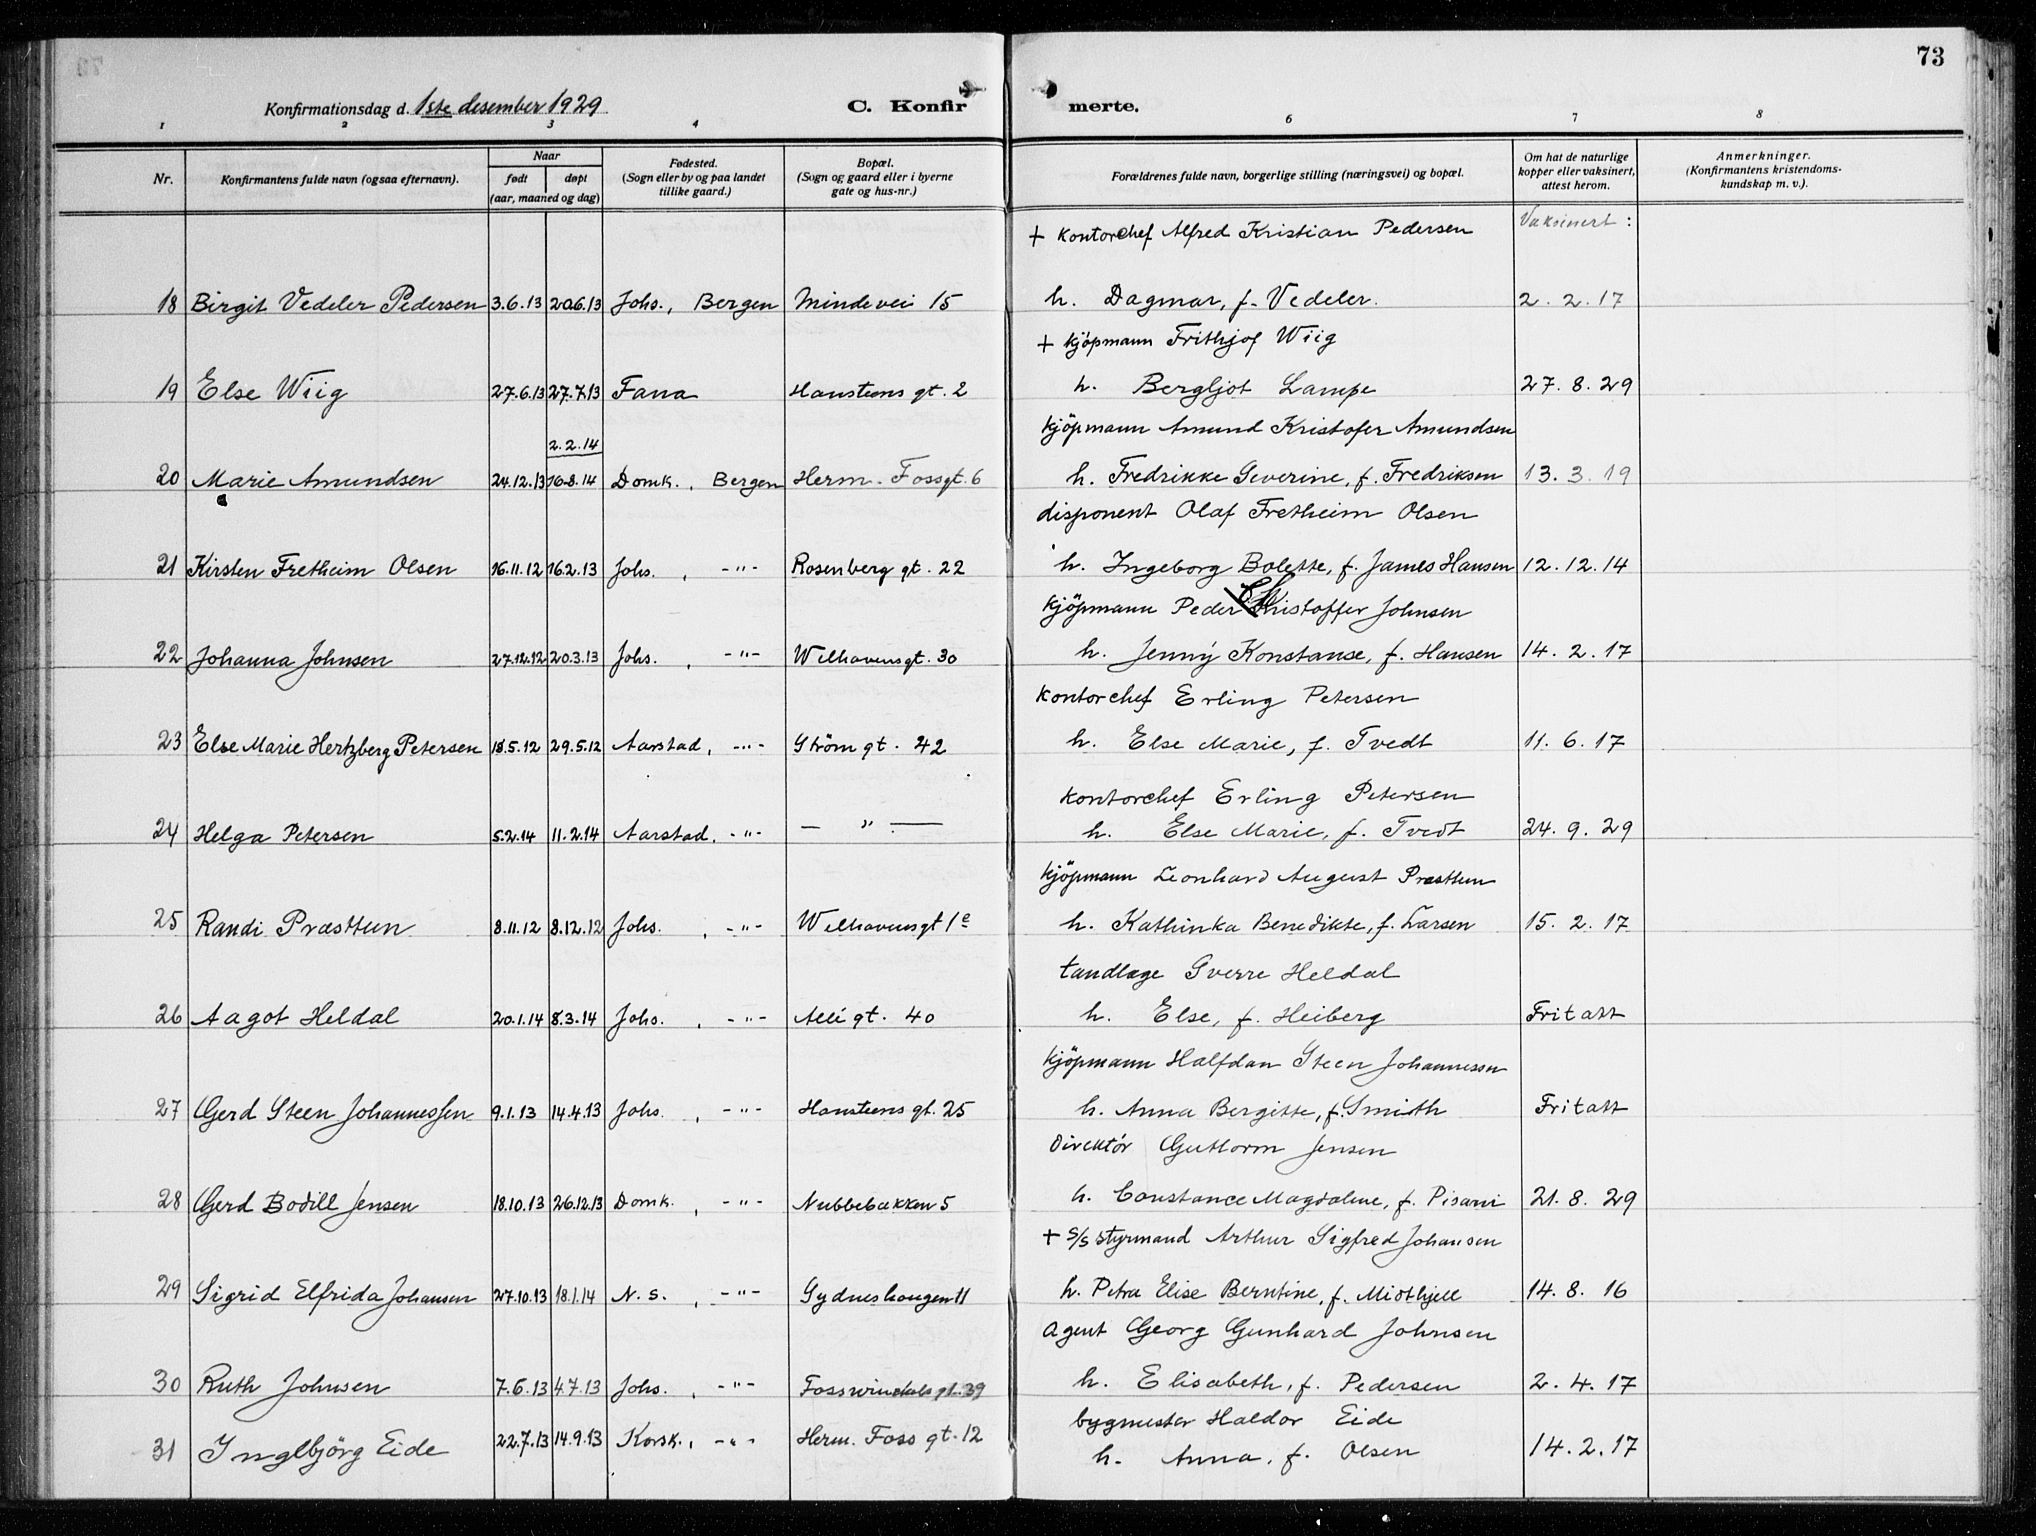 73
Konfirmationsdag d. 1ste desember 1929
C. Konfirmerte.
1 2 3 4 6 7 8
Nr.
Konfirmantens fulde navn (ogsaa efternavn).
Naar
født
døpt
(aar, maaned og dag)
Fødested.
(Sogn eller by og paa landet
tillike gaard.)
Bopæl.
(Sogn og gaard eller i byerne
gate og hus-nr.)
Forældrenes fulde navn, borgerlige stilling (næringsvei) og bopæl.
Om hat de naturlige
kopper eller vaksinert,
attest herom.
Anmerkninger.
(Konfirmantens kristendoms-
kundskap m. v.).
+ kontorchef Alfred Kristian Pedersen Vaksinert:
18 Birgit Vedeler Pedersen 3.6.13 20.6.13 Johs., Bergen Mindevei 15 h. Dagmar, f. Vedeler. 2. 2. 17
+ kjöpmann Frithjof Wiig
19 Else Wiig 27.6.13 27.7.13 Fana Hansteens gt. 2 h. Bergljot Lampe 27. 8. 29
2.2.14 kjöpmann Amund Kristofer Amundsen
20 Marie Amundsen 24.12.13 16.8.14 Domk., Bergen Herm. Foss gt. 6 h. Fredrikke Severine, f. Fredriksen 13. 3. 19
disponent Olaf Fretheim Olsen
21 Kirsten Fretheim Olsen 16.11.12 16.2.13 Johs., -"- Rosenberg gt. 22 h. Ingeborg Bolette, f. James Hansen 12. 12. 14
kjöpmann Peder Christoffer Johnsen
22 Johanna Johnsen 27.12.12 20.3.13 Johs., -"- Welhavensgt. 30 h. Jenny Konstanse, f. Hansen 14. 2. 17
kontorchef Erling Petersen
23 Else Marie Hertzberg Petersen 18.5.12 29.5.12 Aarstad, -"- Ström gt. 42 h. Else Marie, f. Tvedt 11. 6. 17
kontorchef Erling Petersen
24 Helga Petersen 5.2.14 11.2.14 Aarstad, -"- — " — h. Else Marie, f. Tvedt 24. 9. 29
kjöpmann Leonhard August Præsttun
25 Randi Præsttun 8.11.12 8.12.12 Johs., -"- Welhavensgt 1e h. Kathinka Benedikte, f. Larsen 15. 2. 17
tandlæge Sverre Heldal
26 Aagot Heldal 20.1.14 8.3.14 Johs., -"- Allé gt. 40 h. Else, f. Heiberg Fritatt
kjöpmann Halfdan Steen Johannessen
27 Gerd Steen Johannessen 9.1.13 14.4.13 Johs., -"- Hansteens gt. 25 h. Anna Bergitte, f. Smith Fritatt
Direktör Guttorm Jensen
28 Gerd Bodill Jensen 18.10.13 26.12.13 Domk., -"- Nubbebakken 5 h. Constance Magdalene, f. Pisani 21. 8. 29
+ s/s styrmand Arthur Sigfred Johansen
29 Sigrid Elfrida Johansen 27.10.13 18.1.14 N. s., -"- Sydneshaugen 11 h. Petra Elise Berntine, f. Midthjell 14. 8. 16
agent Georg Gunhard Johnsen
30 Ruth Johnsen 7.6.13 4.7.13 Johs., -"- Fosswinckels gt. 39 h. Elisabeth, f. Pedersen 2. 4. 17
bygmester Haldor Eide
31 Ingebjörg Eide 22.7.13 14.9.13 Korsk., -"- Herm. Foss gt. 12 h. Anna, f. Olsen 14. 2. 17